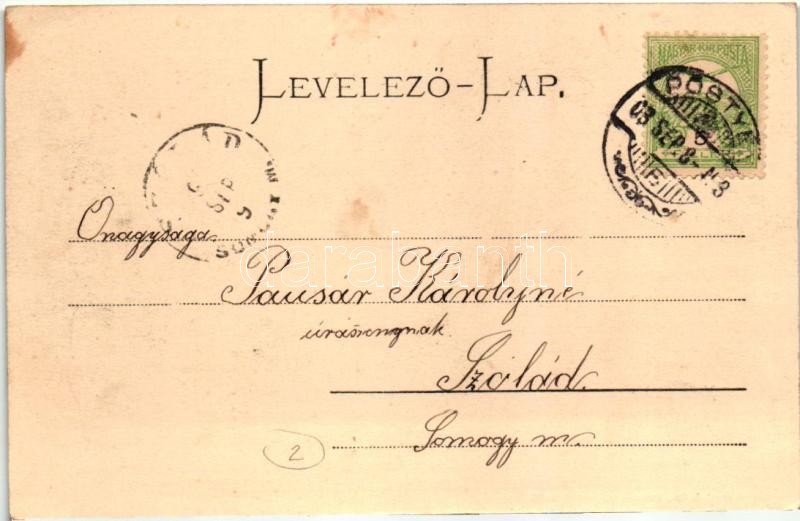 LEVELEZŐ-LAP.
MAGYAR KIR. POSTA
PÖSTYÉ
03 SEP. 8-N3
SZOLÁD
SEP
9
SOMOGY
Önagysága
Pausár Károlyné
úrasszonynak
Szólád.
Somogy m.
2
darabanth